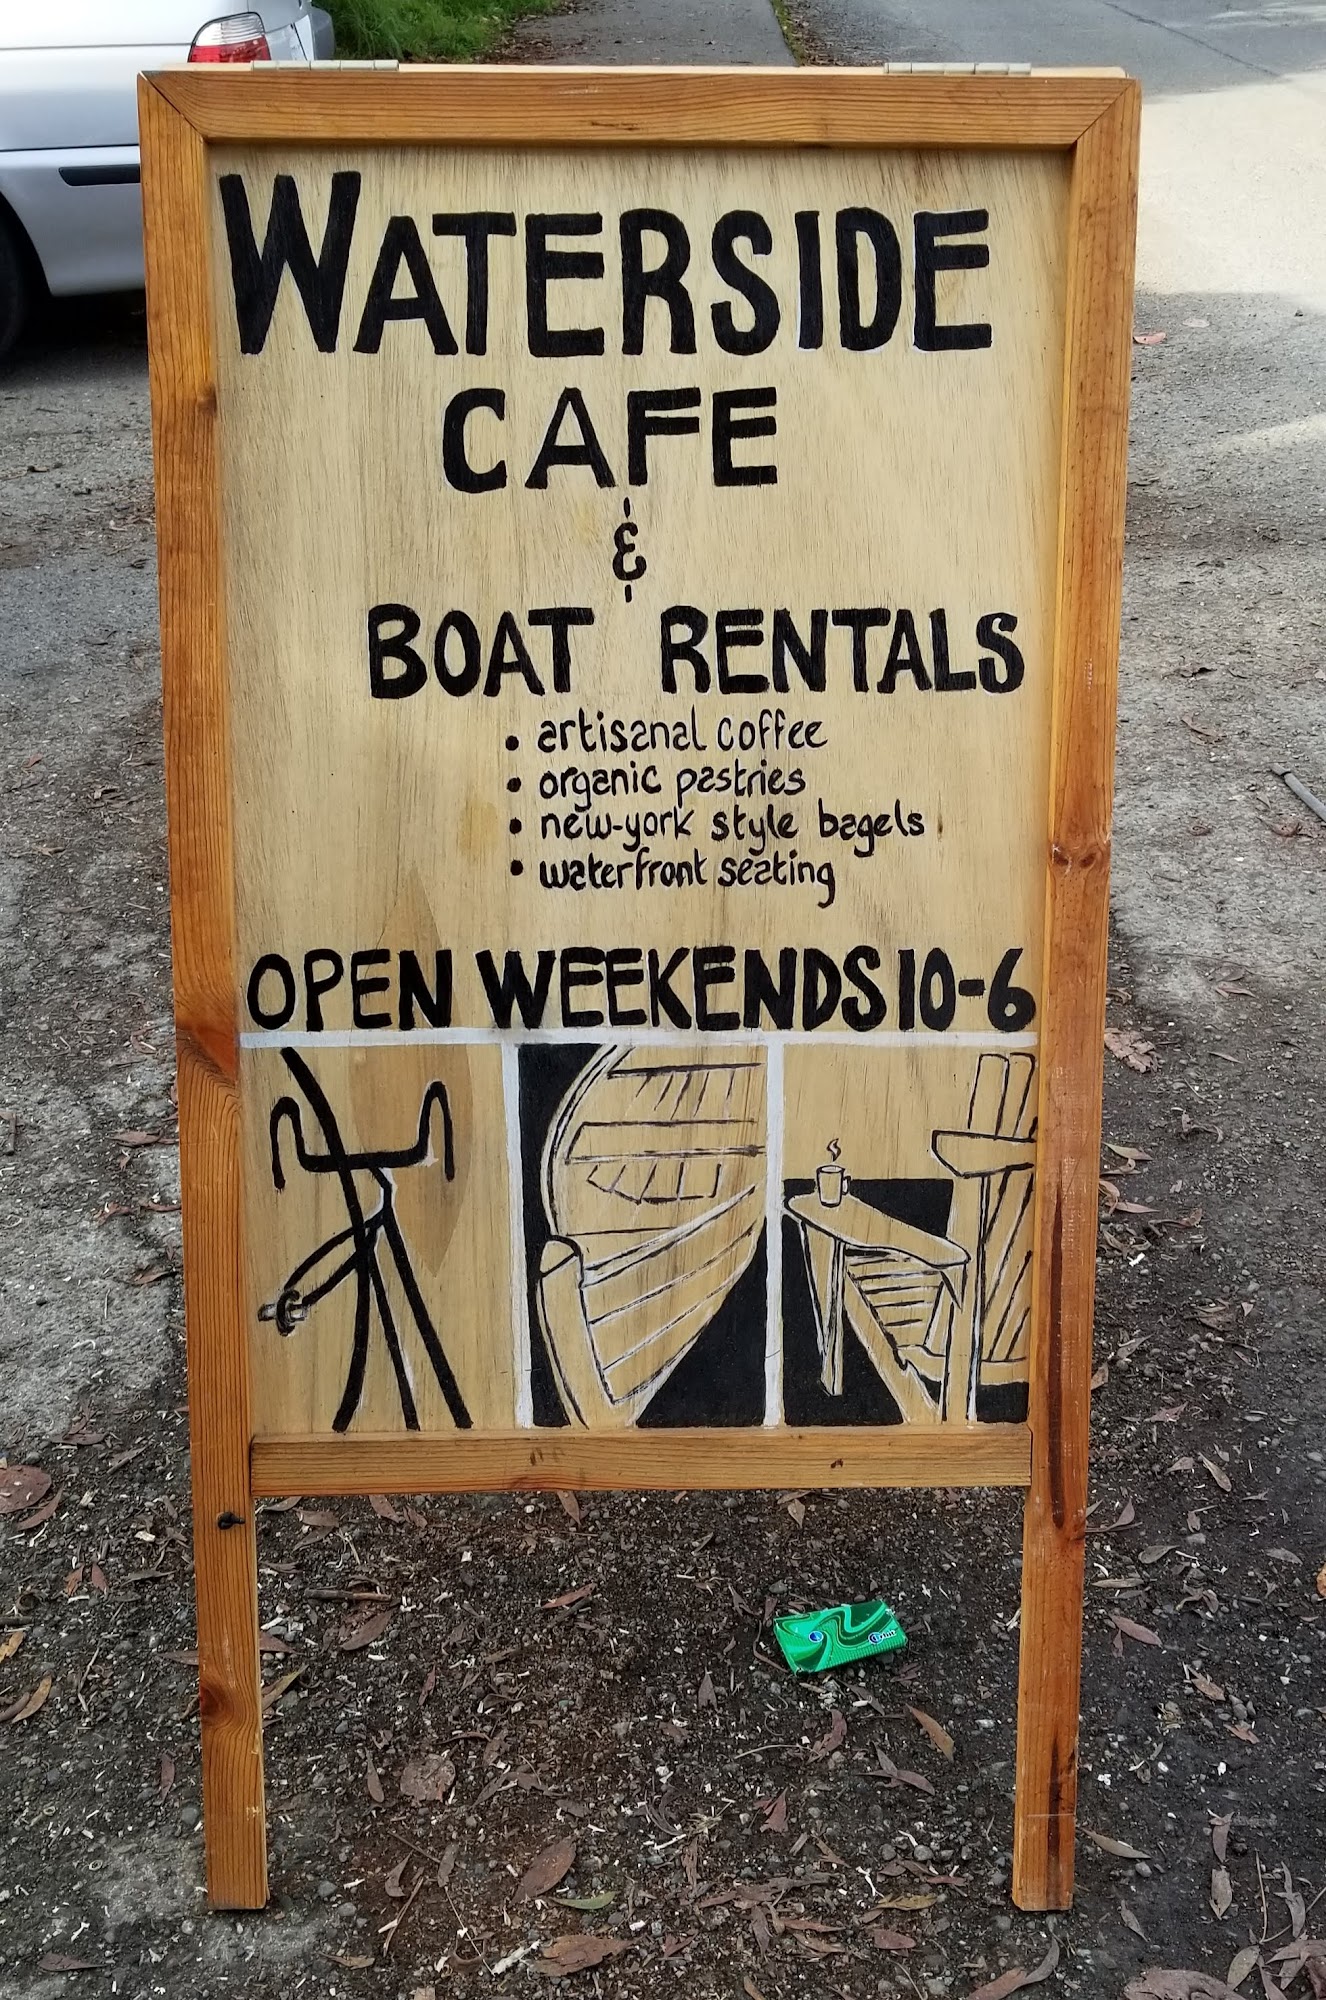 WATERSIDE
CAFE
&
BOAT RENTALS
• artisanal coffee
• organic pastries
• new-york style bagels
• waterfront seating
OPEN WEEKENDS 10-6